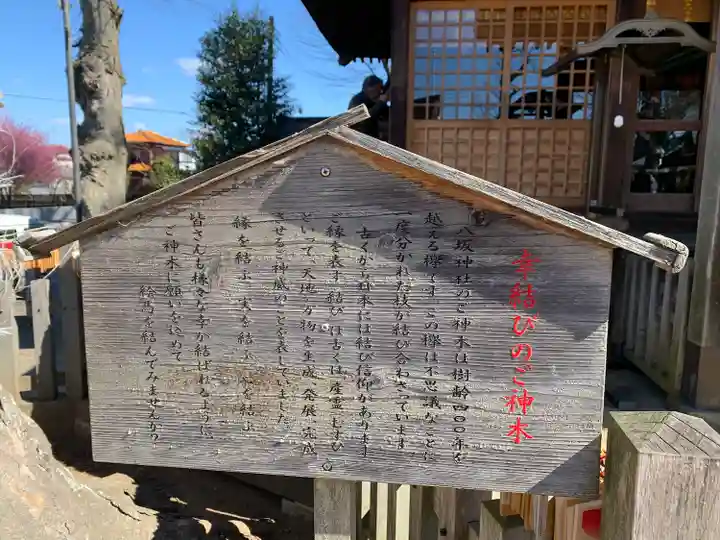 幸結びのご神木
八坂神社のご神木は樹齢四〇〇年を
越える欅です。この欅は不思議なことに
一度分かれた枝が結び合わさっています。
古くから日本には結び信仰があります。
ご縁を表す「結び」は古くは「産霊(むすひ)」
といって、天地万物を生成、発展、完成
させるご神威のことを表していました。
縁を結ぶ、実を結ぶ、
を結ぶ
皆さんも様々な幸が結ばれるように
ご神木に願いを込めて、
絵馬を結んでみませんか?